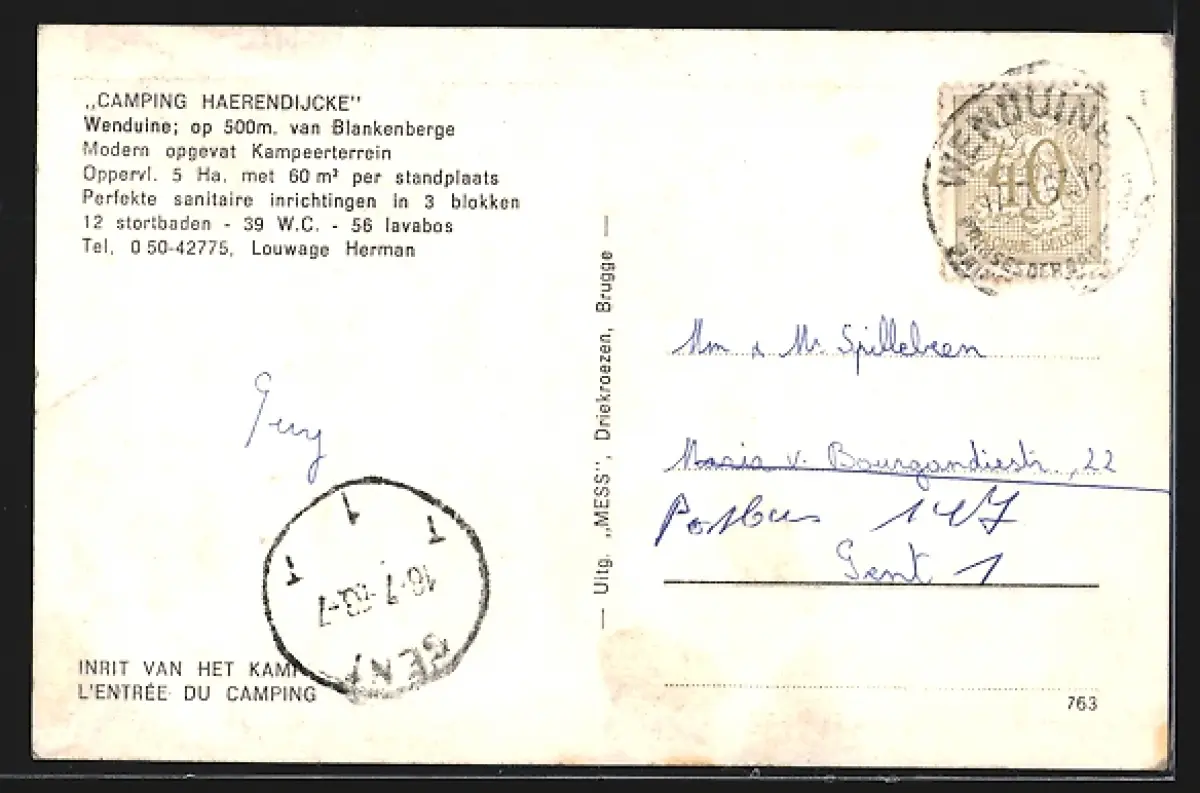 „CAMPING HAERENDIJCKE"
Wenduine; op 500m. van Blankenberge
Modern opgevat Kampeerterrein
Oppervl. 5 Ha. met 60 m² per standplaats
Perfekte sanitaire inrichtingen in 3 blokken
12 stortbaden - 39 W.C. - 56 lavabos
Tel. 0 50-42775, Louwage Herman
INRIT VAN HET KAMP
L'ENTRÉE DU CAMPING
GENT
— Uitg. „MESS", Driekroezen, Brugge —
WENDUINE
40
BELGIQUE-BELGIE
Mm & Mr Spillebeen
Maria v. Bourgondiestr, 22
Postbus 147
Gent 1
763